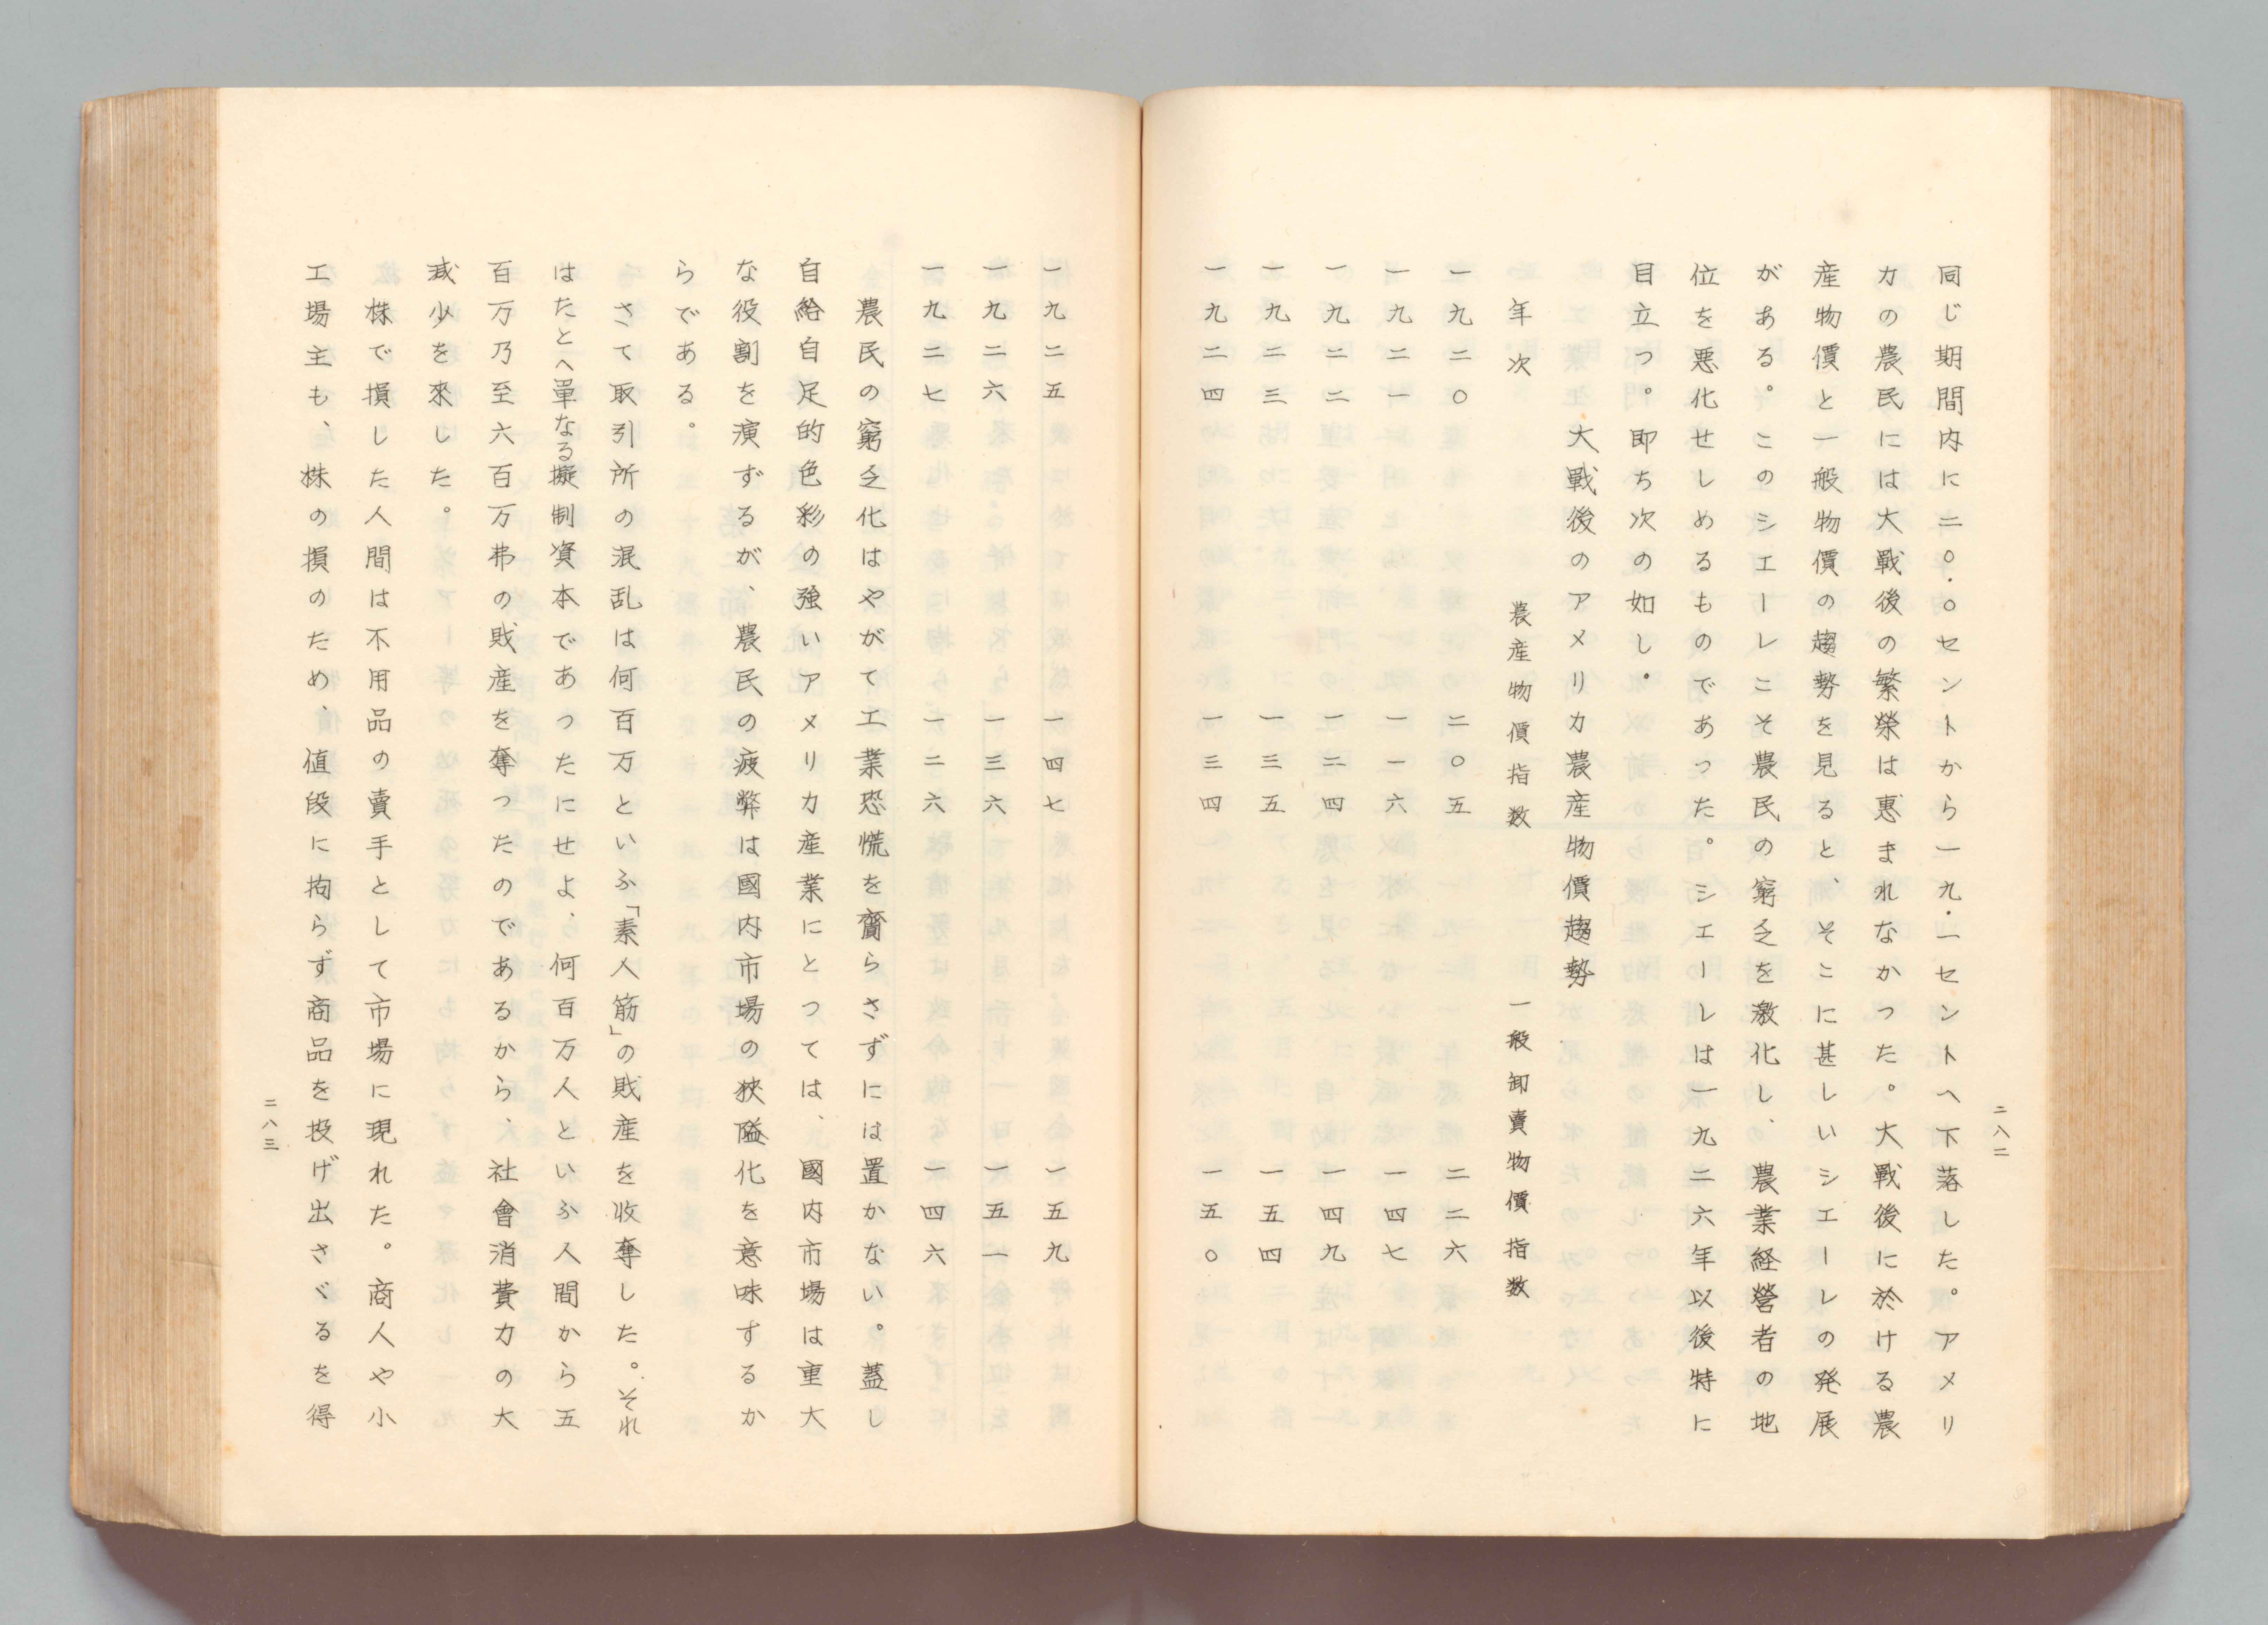 二八二
同じ期間内に二〇・〇セントから一九・一セントへ下落した。アメリ
カの農民には大戰後の繁榮は惠まれなかった。大戰後に於ける農
産物價と一般物價の趨勢を見ると、そこに甚しいシエーレの発展
がある。このシエーレこそ農民の窮乏を激化し、農業経營者の地
位を悪化せしめるものであった。シエーレは一九二六年以後特に
目立つ。即ち次の如し。
大戰後のアメリカ農産物價趨勢
年次 農産物價指数 一般卸賣物價指数
一九二〇 二〇五 二二六
一九二一 一一六 一四七
一九二二 一二四 一四九
一九二三 一三五 一五四
一九二四 一三四 一五〇
一九二五 一四七 一五九
一九二六 一三六 一五一
一九二七 一二六 一四六
農民の窮乏化はやがて工業恐慌を齎らさずには置かない。蓋し
自給自足的色彩の強いアメリカ産業にとつては、國内市場は重大
な役割を演ずるが、農民の疲弊は國内市場の狹隘化を意味するか
らである。
さて取引所の混乱は何百万といふ「素人筋」の財産を收奪した。それ
はたとへ單なる擬制資本であつたにせよ、何百万人といふ人間から五
百万乃至六百万弗の財産を奪つたのであるから、社會消費力の大
減少を來した。
株で損した人間は不用品の賣手として市場に現れた。商人や小
工場主も、株の損のため、値段に拘らず商品を投げ出さゞるを得
二八三